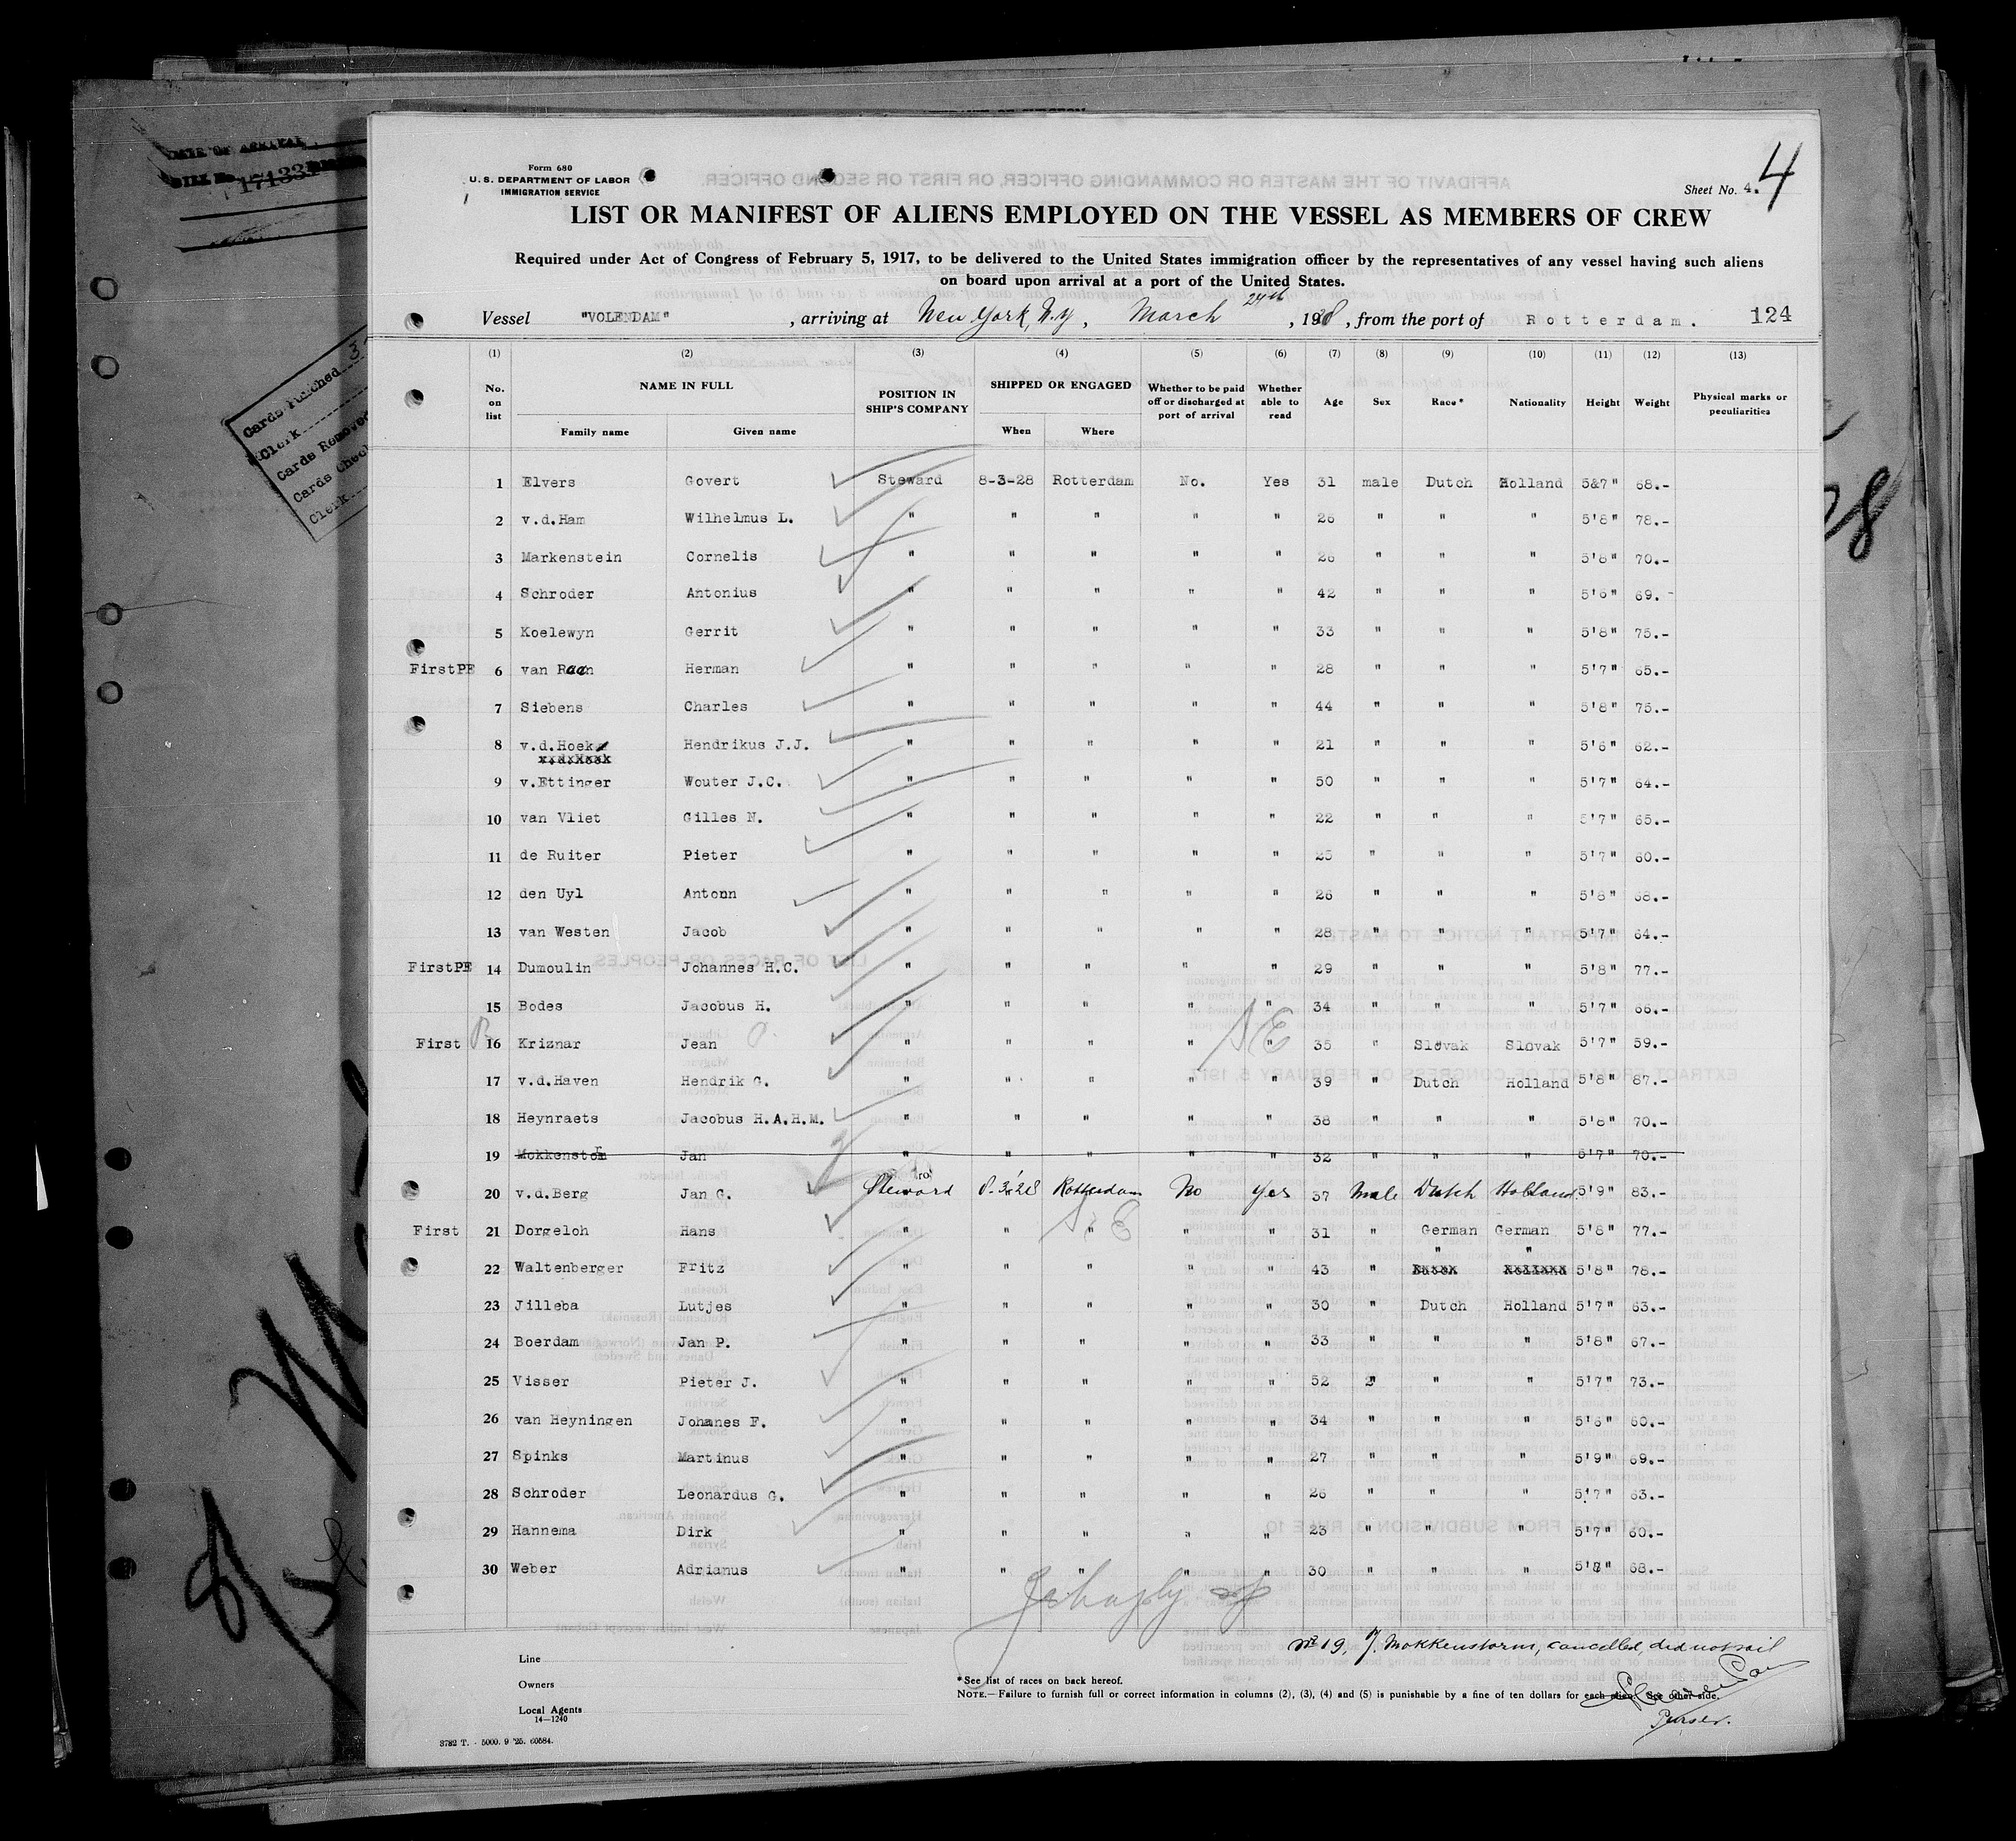 DATE OF ARRIVAL
17133
Cards Punched
Clerk
Cards Removed
Cards Check
Clerk
Form 680
U. S. DEPARTMENT OF LABOR
IMMIGRATION SERVICE
Sheet No. 4. 4
LIST OR MANIFEST OF ALIENS EMPLOYED ON THE VESSEL AS MEMBERS OF CREW
Required under Act of Congress of February 5, 1917, to be delivered to the United States immigration officer by the representatives of any vessel having such aliens
on board upon arrival at a port of the United States.
Vessel "VOLENDAM" , arriving at New York, N.Y, March 27th , 1928 , from the port of Rotterdam. 124
(1) (2) (3) (4) (5) (6) (7) (8) (9) (10) (11) (12) (13)
No. on list NAME IN FULL Family name Given name POSITION IN SHIP'S COMPANY SHIPPED OR ENGAGED When Where Whether to be paid off or discharged at port of arrival Whether able to read Age Sex Race* Nationality Height Weight Physical marks or peculiarities
1 Elvers Govert Steward 8-3-28 Rotterdam No. Yes 31 male Dutch Holland 5&7" 68.-
2 v.d.Ham Wilhelmus L. " " " " " 26 " " " 5'8" 78.-
3 Markenstein Cornelis " " " " " 26 " " " 5'8" 70.-
4 Schroder Antonius " " " " " 42 " " " 5'6" 69.-
5 Koelewyn Gerrit " " " " " 33 " " " 5'8" 75.-
FirstPE 6 van Raan Herman " " " " " 28 " " " 5'7" 65.-
7 Siebens Charles " " " " " 44 " " " 5'8" 75.-
8 v.d.Hoek Hendrikus J.J. " " " " " 21 " " " 5'6" 62.-
9 v.Ettinger Wouter J.C. " " " " " 50 " " " 5'7" 64.-
10 van Vliet Gilles N. " " " " " 22 " " " 5'7" 65.-
11 de Ruiter Pieter " " " " " 25 " " " 5'7" 60.-
12 den Uyl Antonn " " " " " 26 " " " 5'8" 68.-
13 van Westen Jacob " " " " " 28 " " " 5'7" 64.-
FirstPE 14 Dumoulin Johannes H.C. " " " " " 29 " " " 5'8" 77.-
15 Bodes Jacobus H. " " " " " 34 " " " 5'7" 66.-
First 16 Kriznar Jean " " " " " 35 " Slovak Slovak 5'7" 59.-
17 v.d.Haven Hendrik G. " " " " " 39 " Dutch Holland 5'8" 87.-
18 Heynraets Jacobus H.A.H.M. " " " " " 38 " " " 5'8" 70.-
19 Mokkenstom Jan " " " " " 32 " " " 5'7" 70.-
20 v.d.Berg Jan G. Steward 8-3-28 Rotterdam No Yes 37 Male Dutch Holland 5'9" 83.-
First 21 Dorgeloh Hans " " " " " 31 " German German 5'8" 77.-
22 Waltenberger Fritz " " " " " 43 " " " 5'8" 78.-
23 Jilleba Lutjes " " " " " 30 " Dutch Holland 5'7" 63.-
24 Boerdam Jan P. " " " " " 33 " " " 5'8" 67.-
25 Visser Pieter J. " " " " " 52 " " " 5'7" 73.-
26 van Heyningen Johanes F. " " " " " 34 " " " 5'6" 60.-
27 Spinks Martinus " " " " " 27 " " " 5'9" 69.-
28 Schroder Leonardus G. " " " " " 26 " " " 5'7" 63.-
29 Hannema Dirk " " " " " 23 " " " 5'7" 60.-
30 Weber Adrianus " " " " " 30 " " " 68.-
Nr 19, J. Mokkenstorm, cancelled, did not sail
Line
Owners
Local Agents
14—1240
*See list of races on back hereof.
NOTE.—Failure to furnish full or correct information in columns (2), (3), (4) and (5) is punishable by a fine of ten dollars for each alien. See other side.
Purser.
3782 T. - 5000. 9 '25. 60584.